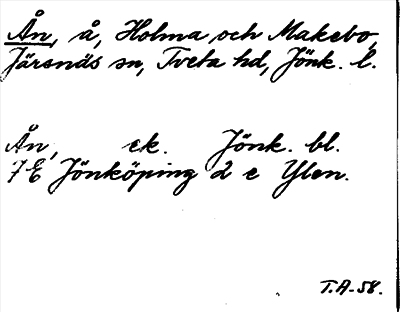 Ån, å, Holma och Makebo,
Järsnäs sn, Tveta hd, Jönk. l.
Ån, ek. Jönk. bl.
7 E Jönköping 2 e Ylen.
T.A-58.